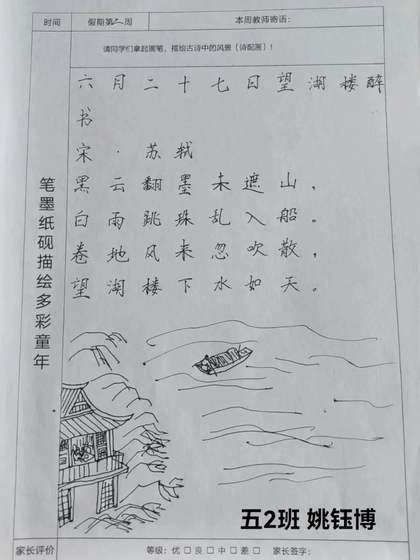 时间 假期第二周 本周教师寄语:
请同学们拿起画笔，描绘古诗中的风景（诗配画）！
六月二十七日望湖楼醉
书
宋·苏轼
黑云翻墨未遮山，
白雨跳珠乱入船。
卷地风来忽吹散，
望湖楼下水如天。
笔墨纸砚描绘多彩童年
五2班 姚钰博
家长评价 等级: 优 □ 良 □ 中 □ 差 □ 家长签字: